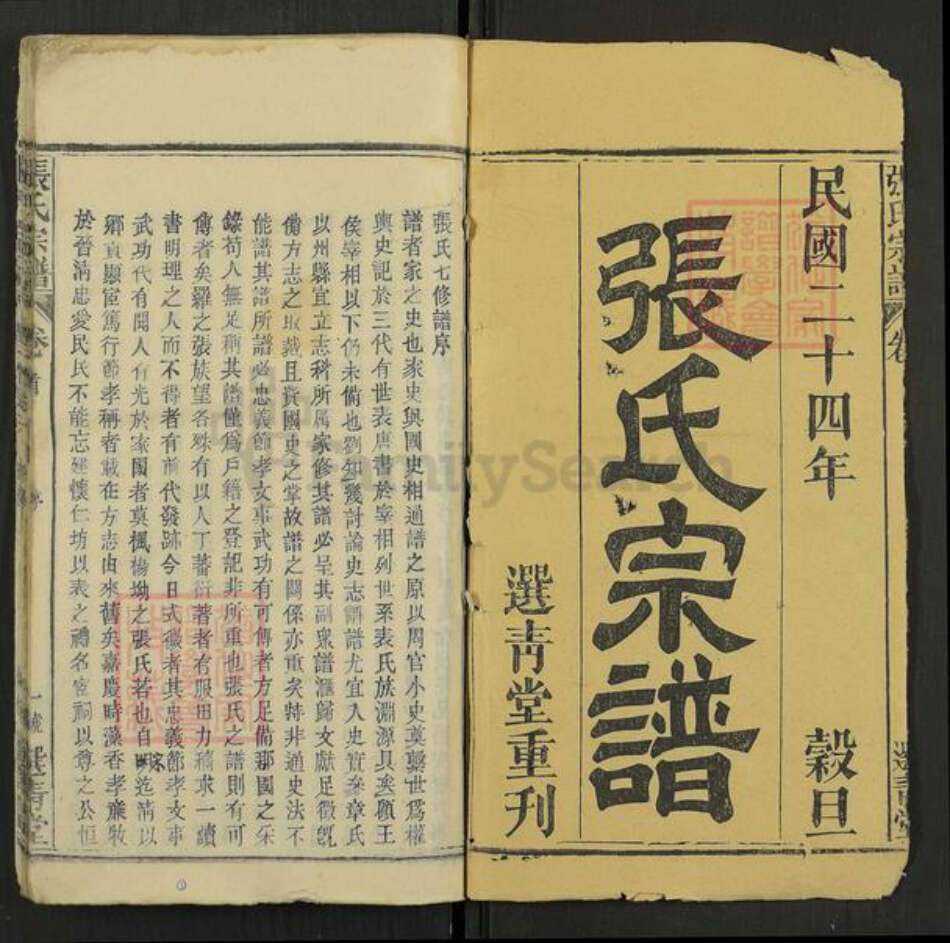 民國二十四年 穀旦
張氏宗譜
選青堂重刊
張氏宗譜
選青堂
張氏七修譜序
譜者家之史也家史與國史相通譜之原以周官小史奠繫世爲權
輿史記於三代有世表唐書於宰相列世系表氏族淵源具矣顧王
侯宰相以下仍未備也劉知幾討論史志謂譜尤宜入史實參章氏
以州縣宜立志科所属家修其譜必呈其副衆譜滙歸文獻足徵旣
備方志之取裁且資國史之掌故譜之關係亦重矣特非通史法不
能譜其譜所譜必忠義節孝文事武功有可傳者方足備郡國之采
錄苟人無足稱其譜僅爲戶籍之登記非所重也張氏之譜則有可
傳者矣羅之張族望各殊有以人丁蕃衍著者有服田力穡求一讀
書明理之人而不得者有前代發跡今日式微者其忠義節孝文事
武功代有聞人有光於家國者莫楓楊坳之張氏若也自 迄淸以
鄉貢顯宦篤行節孝稱者載在方志由來舊矣嘉慶時藻香孝亷牧
於晉淸忠愛民民不能忘建懷仁坊以表之禮名宦祠以尊之公恒
張氏宗譜
卷首
序
一
選青堂
FamilySearch